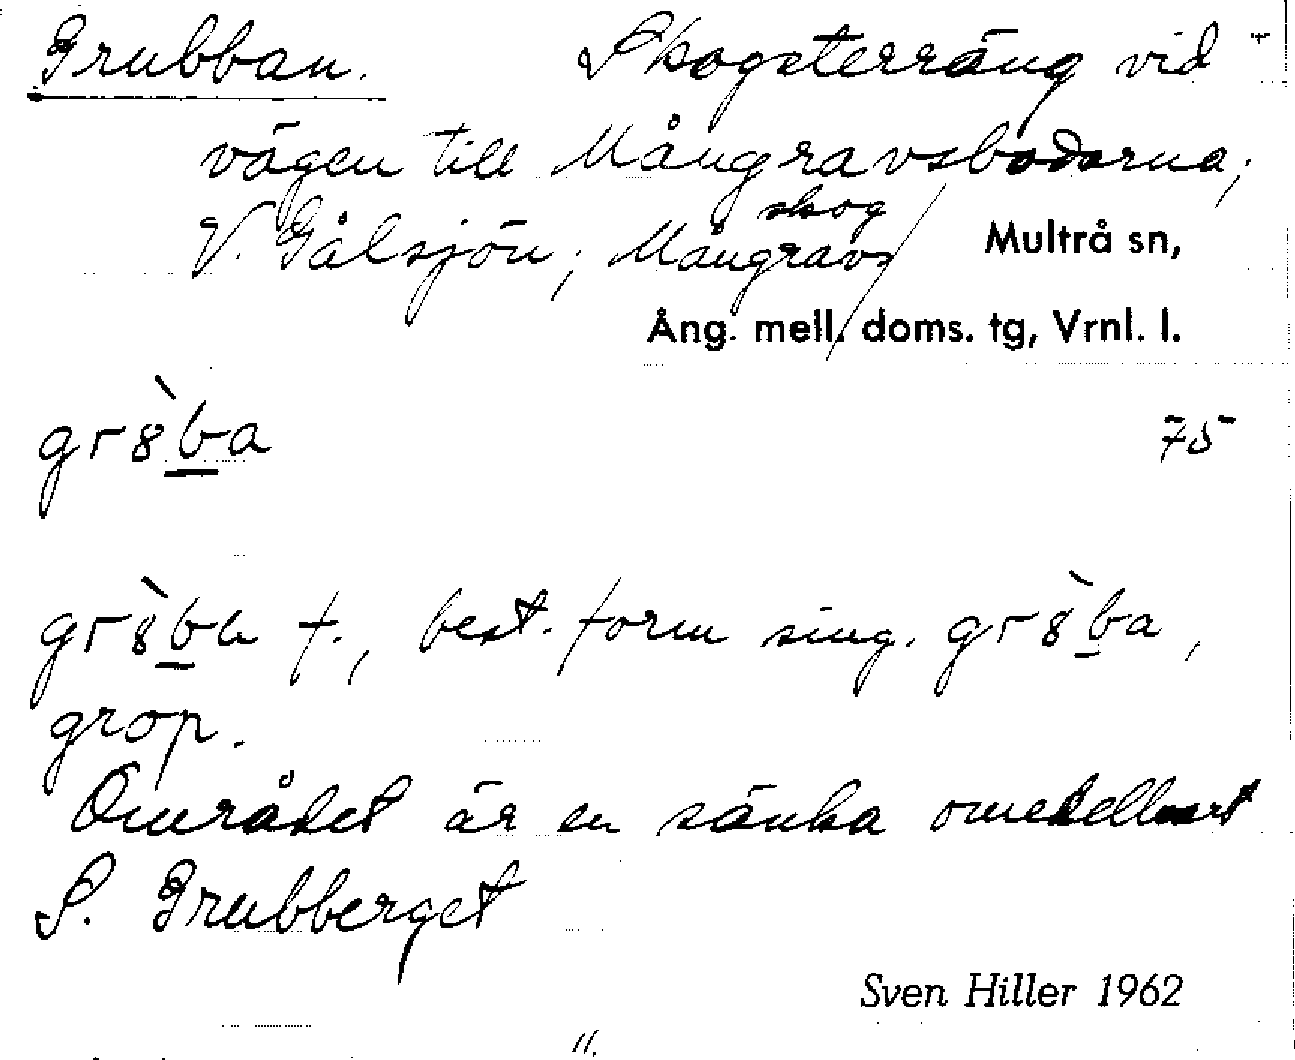 Grubban. Skogsterräng vid
vägen till Mångravsbodarna;
V. Gålsjön; Mångravs skog
Multrå sn,
Ång. mell. doms. tg, Vrnl. l.
gr8̀b̲a 75
gr8̀b̲a f., best. form sing. gr8̀b̲a,
grop.
Området är en sänka omedelbart
S. Grubberget
Sven Hiller 1962